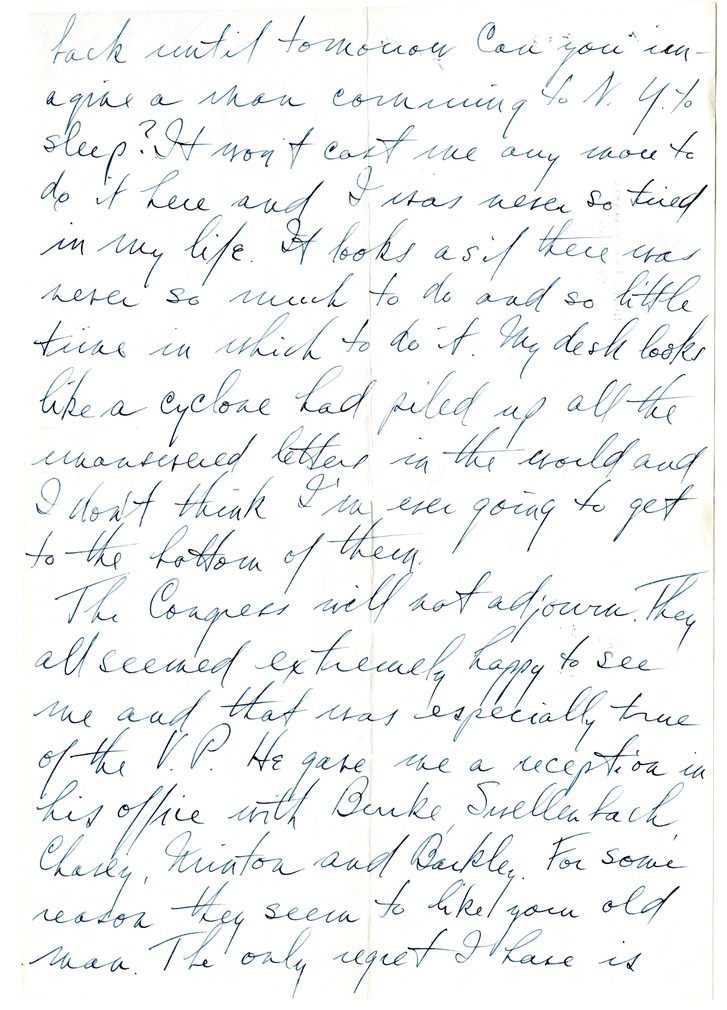 back until tomorrow Can you im-
agine a man comming to N. Y. to
sleep? It won't cost me any more to
do it here and I was never so tired
in my life. It looks as if there was
never so much to do and so little
time in which to do it. My desk looks
like a cyclone had piled up all the
unanswered letters in the world and
I don't think I'm ever going to get
to the bottom of them.
The Congress will not adjourn. They
all seemed extremely happy to see
me and that was especially true
of the V. P. He gave me a reception in
his office with Burke, Swellenbach
Chavey, Minton and Barkley. For some
reason they seem to like your old
man. The only regret I have is